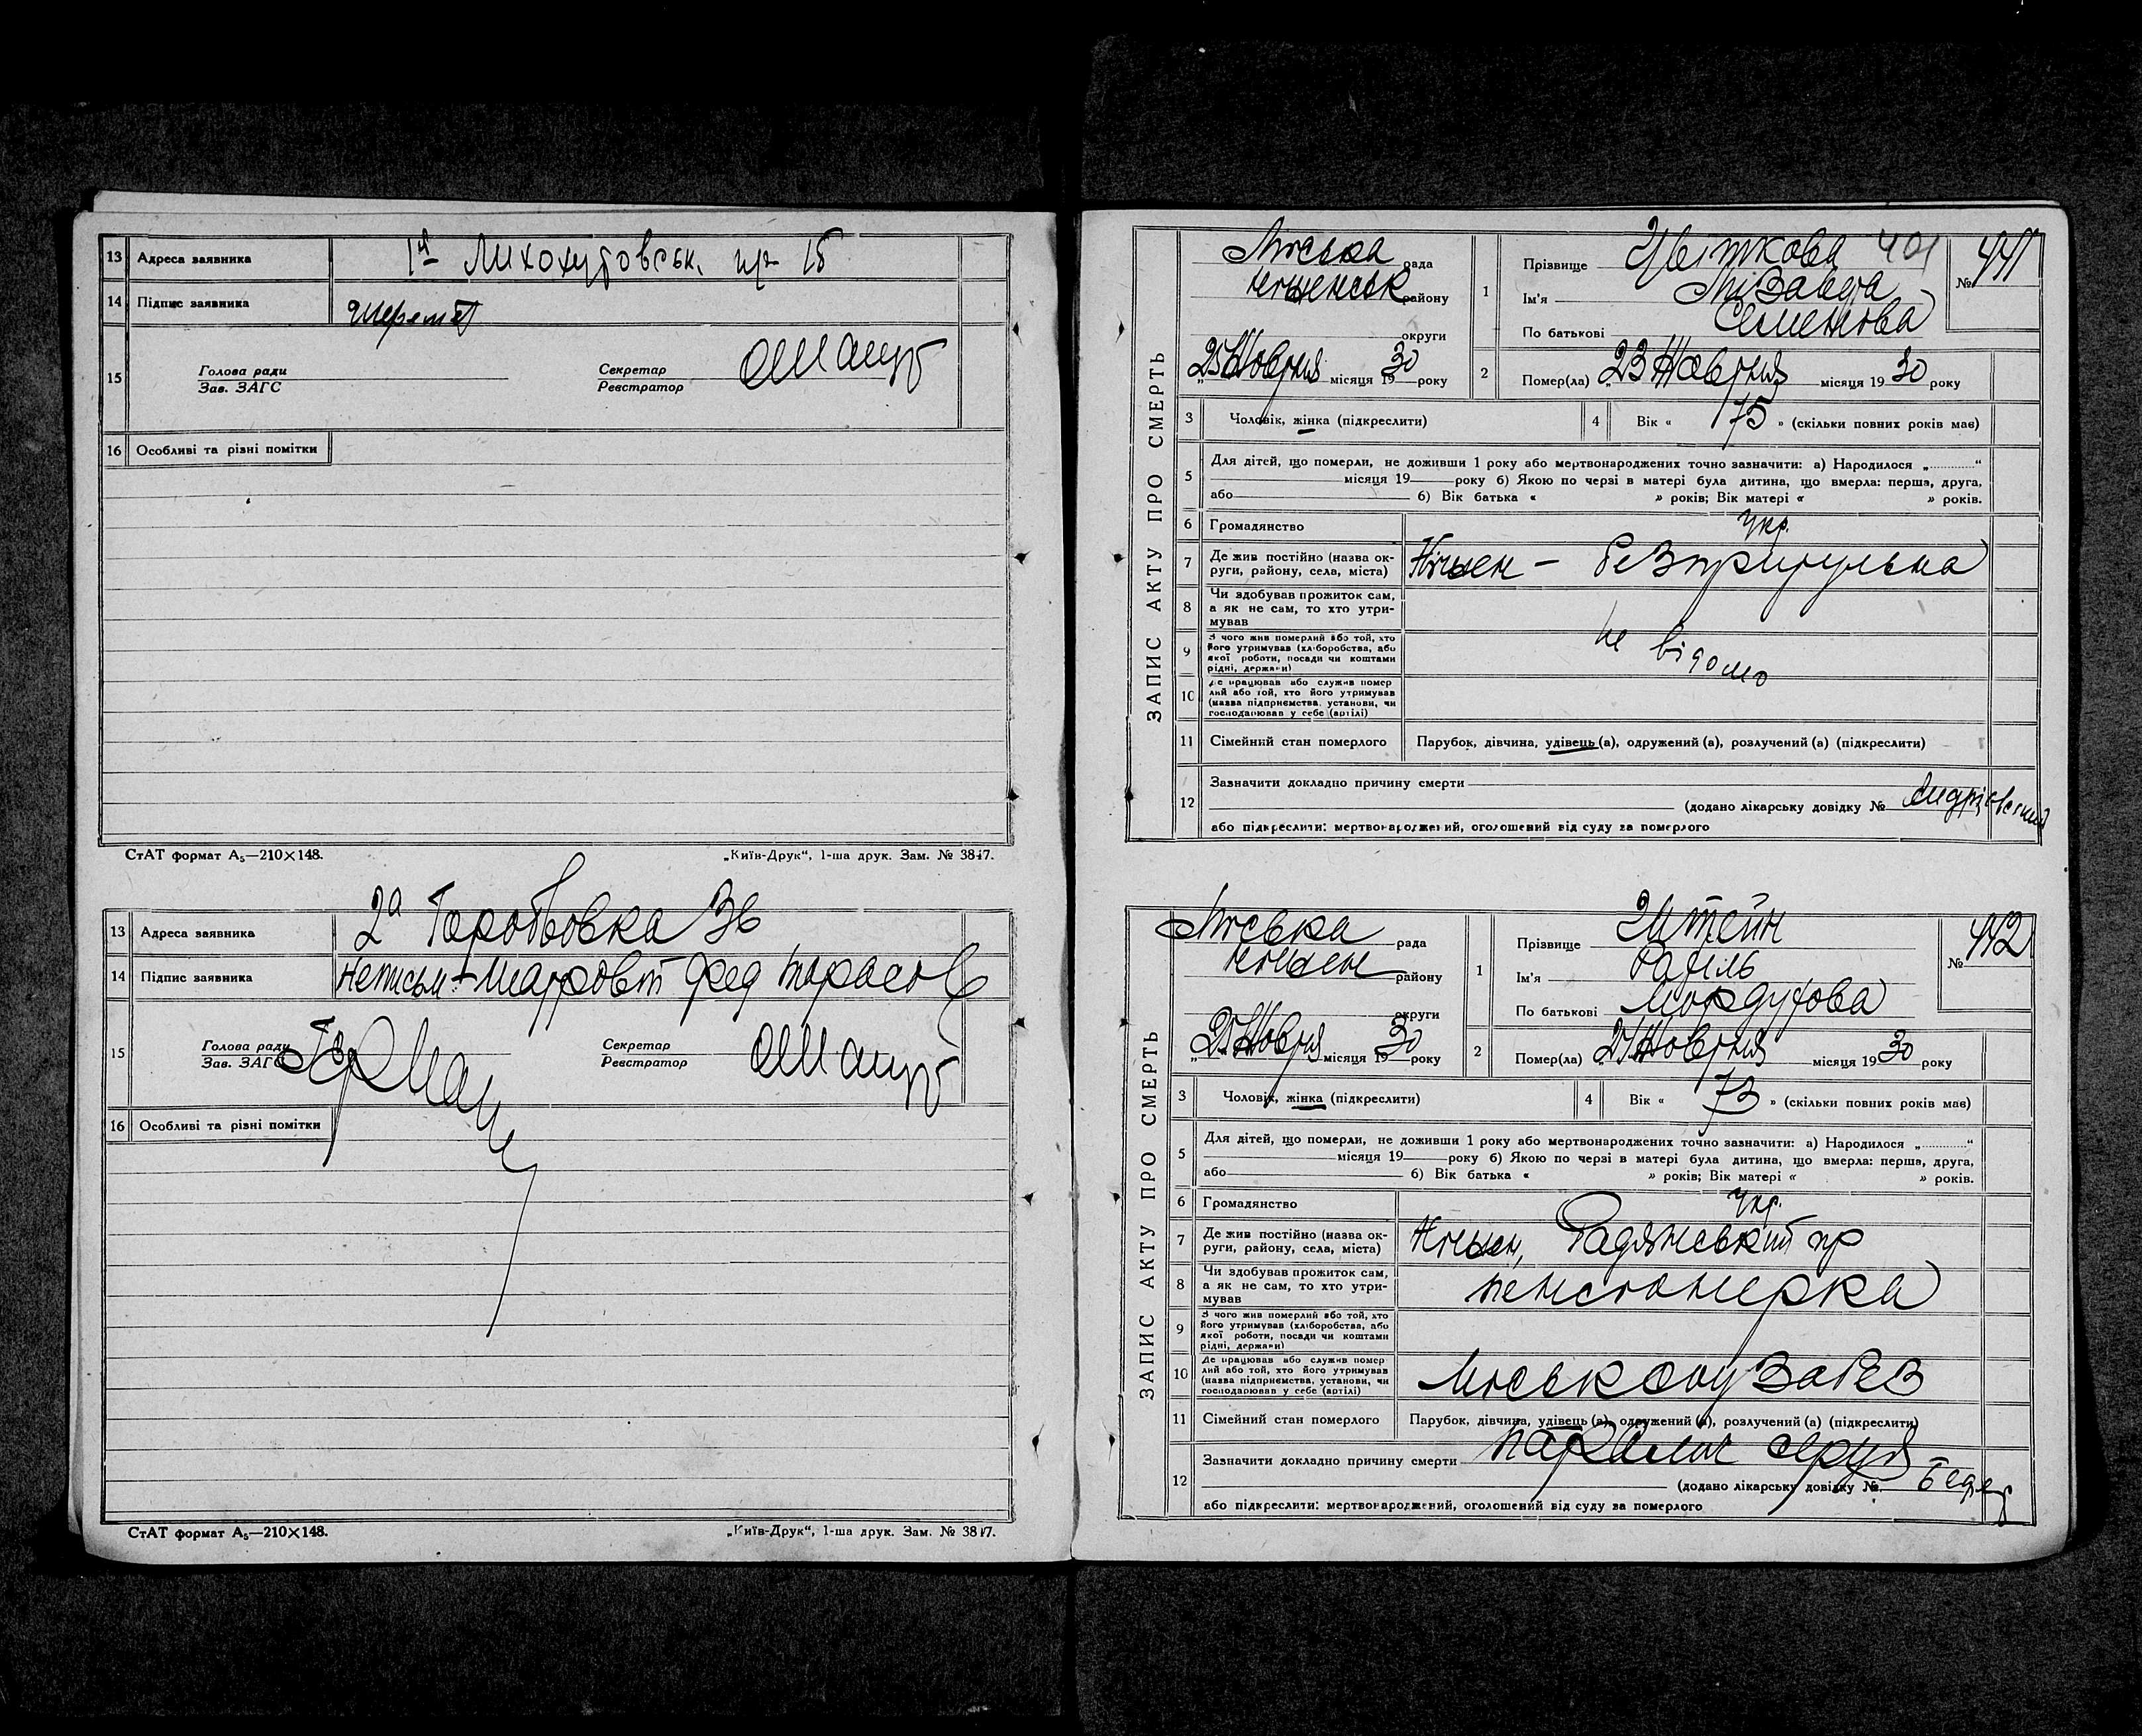 13 Адреса заявника 1й Лихохутовськ. пр 15
14 Підпис заявника
15 Голова ради Зав. ЗАГС Секретар Реєстратор
16 Особливі та різні помітки
СтАТ формат А₅—210×148. „Київ-Друк“, 1-ша друк. Зам. № 3847.
13 Адреса заявника 2а 36
14 Підпис заявника неписьм.
15 Голова ради Зав. ЗАГС Секретар Реєстратор
16 Особливі та різні помітки
СтАТ формат А₅—210×148. „Київ-Друк“, 1-ша друк. Зам. № 3847.
ЗАПИС АКТУ ПРО СМЕРТЬ
Міська рада
Ніженськ району
округи
„25 Жовтня місяця 1930 року
1 Прізвище Цвіткова 401
Ім'я Лізавета
По батькові Семенова
№ 441
2 Помер(ла) „23 Жовтня місяця 1930 року
3 Чоловік, жінка (підкреслити)
4 Вік « 75 » (скільки повних років має)
5 Для дітей, що померли, не доживши 1 року або мертвонароджених точно зазначити: а) Народилося „ “
місяця 19 року б) Якою по черзі в матері була дитина, що вмерла: перша, друга,
або б) Вік батька « » років; Вік матері « » років.
6 Громадянство Укр.
7 Де жив постійно (назва округи, району, села, міста) Ніжен – безпритульна
8 Чи здобував прожиток сам, а як не сам, то хто утримував
9 З чого жив померлий або той, хто його утримував (хліборобства, або якої роботи, посади чи коштами рідні, держави) не відомо
10 Де працював або служив померлий або той, хто його утримував (назва підприємства, установи, чи господарював у себе (артілі)
11 Сімейний стан померлого Парубок, дівчина, удівець (а), одружений (а), розлучений (а) (підкреслити)
12 Зазначити докладно причину смерти
(додано лікарську довідку № Андрієвський
або підкреслити: мертвонароджений, оголошений від суду за померлого
ЗАПИС АКТУ ПРО СМЕРТЬ
Міська рада
Ніжен району
округи
„25 Жовтня місяця 1930 року
1 Прізвище Штейн
Ім'я Рахіль
По батькові Мордухова
№ 442
2 Помер(ла) Жовтня місяця 1930 року
3 Чоловік, жінка (підкреслити)
4 Вік « 73 » (скільки повних років має)
5 Для дітей, що померли, не доживши 1 року або мертвонароджених точно зазначити: а) Народилося „ “
місяця 19 року б) Якою по черзі в матері була дитина, що вмерла: перша, друга,
або б) Вік батька « » років; Вік матері « » років.
6 Громадянство Укр.
7 Де жив постійно (назва округи, району, села, міста) Ніжен, Радянський пр
8 Чи здобував прожиток сам, а як не сам, то хто утримував пенсіонерка
9 З чого жив померлий або той, хто його утримував (хліборобства, або якої роботи, посади чи коштами рідні, держави)
10 Де працював або служив померлий або той, хто його утримував (назва підприємства, установи, чи господарював у себе (артілі)
11 Сімейний стан померлого Парубок, дівчина, удівець (а), одружений (а), розлучений (а) (підкреслити)
12 Зазначити докладно причину смерти параліч серця
(додано лікарську довідку №
або підкреслити: мертвонароджений, оголошений від суду за померлого